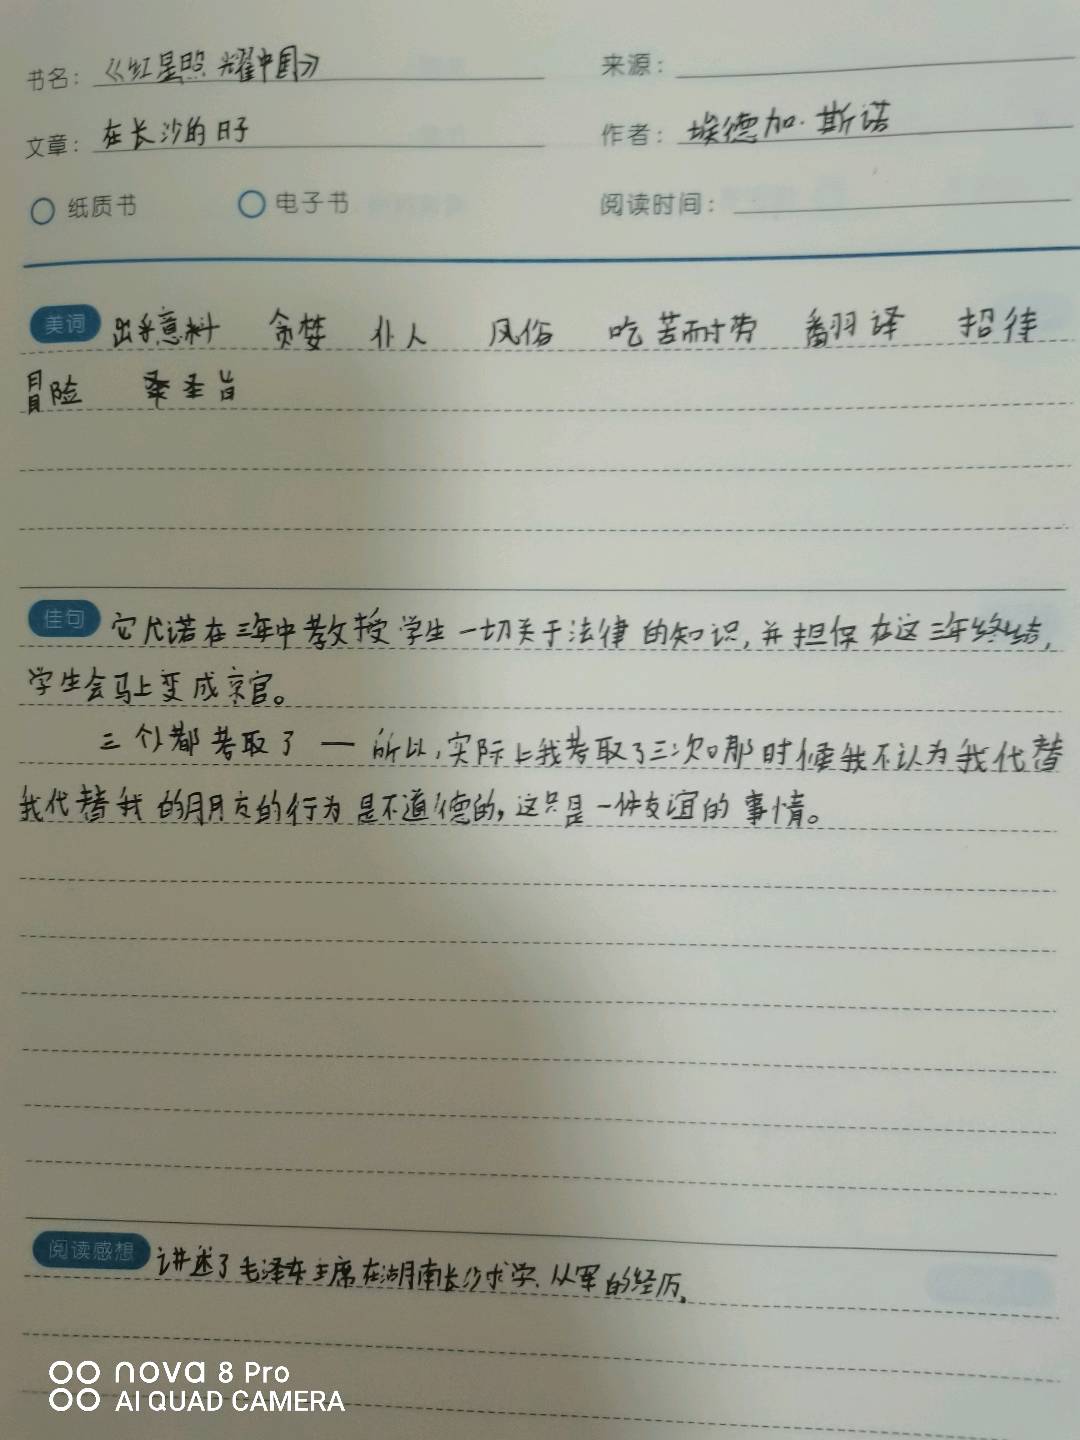 书名：《红星照耀中国》 来源：
文章：在长沙的日子 作者：埃德加·斯诺
纸质书 电子书 阅读时间：
美词 出乎意料 贪婪 仆人 风俗 吃苦耐劳 翻译 招待
冒险 奉圣旨
佳句 它允诺在三年中教授学生一切关于法律的知识,并担保在这三年终结,
学生会马上变成京官。
三个人都考取了—所以,实际上我考取了三次。那时候我不认为我代替
我代替我的朋友的行为是不道德的,这只是一件友谊的事情。
阅读感想 讲述了毛泽东主席在湖南长沙求学、从军的经历。
nova 8 Pro
AI QUAD CAMERA